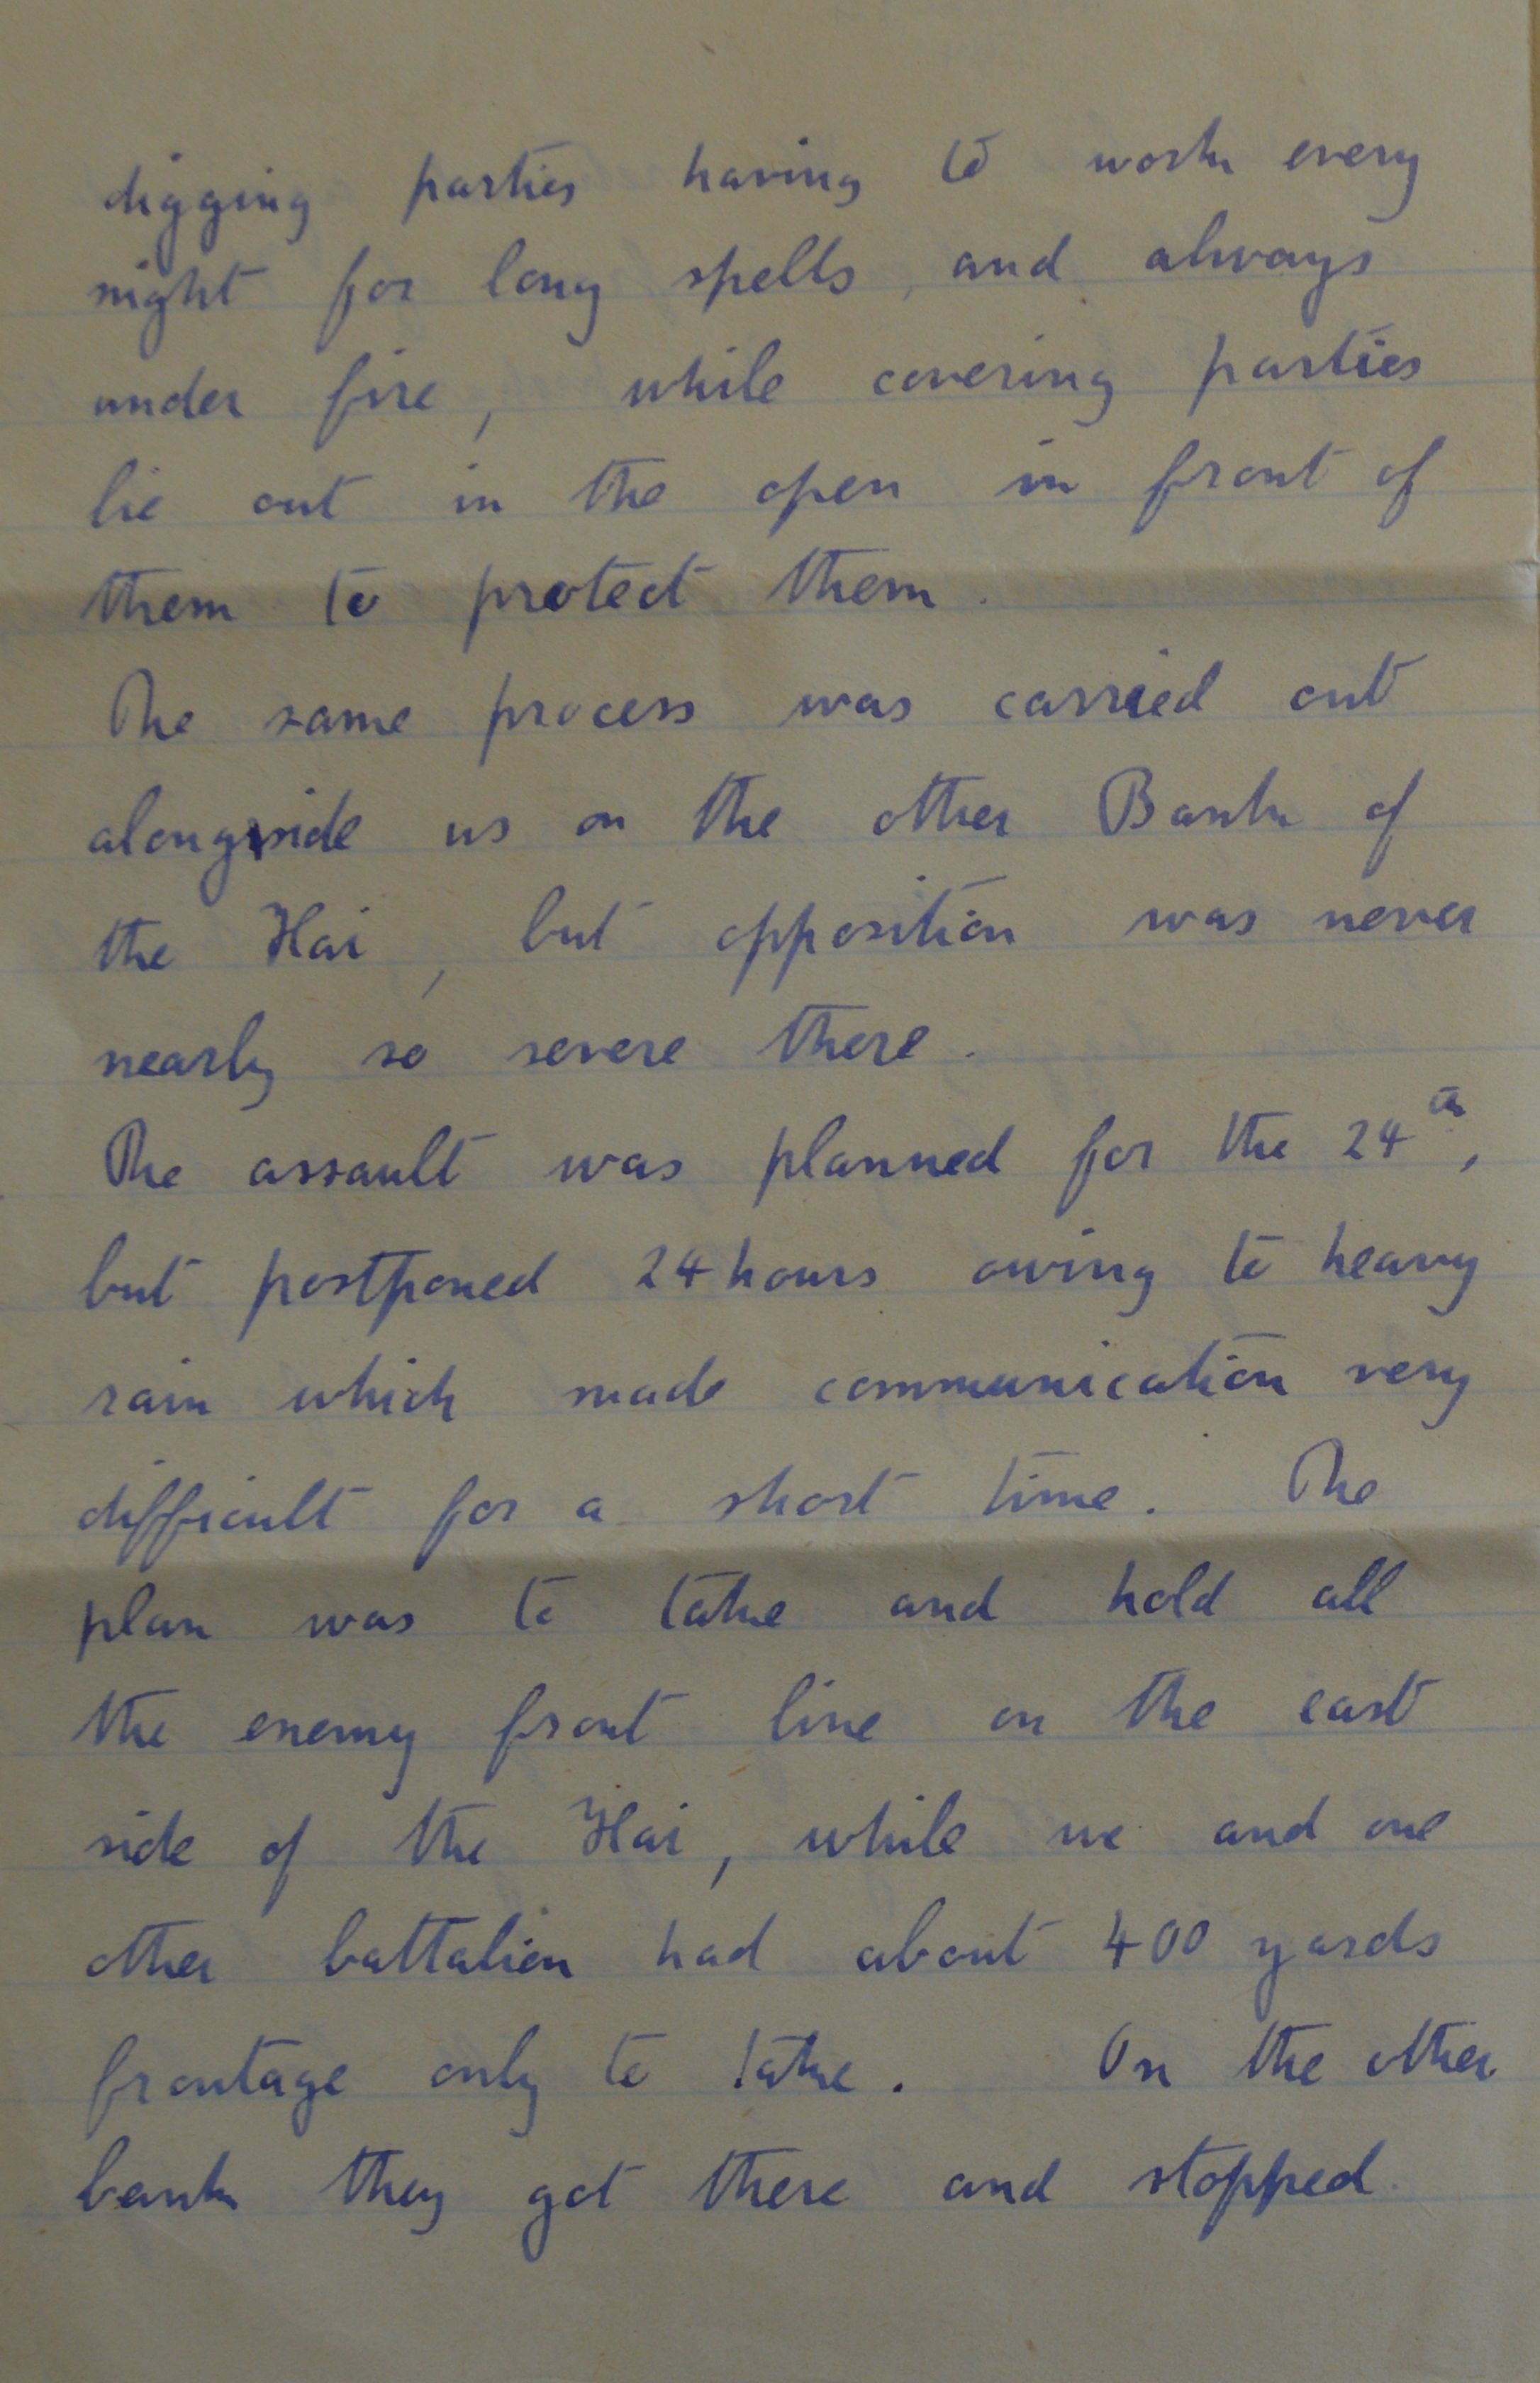 digging parties having to work every
night for long spells, and always
under fire, while covering parties
lie out in the open in front of
them to protect them.
The same process was carried out
alongside us on the other Bank of
the Hai, but opposition was never
nearly so severe there.
The assault was planned for the 24th,
but postponed 24 hours owing to heavy
rain which made communication very
difficult for a short time. The
plan was to take and hold all
the enemy front line on the east
side of the Hai, while we and one
other battalion had about 400 yards
frontage only to take. On the other
bank they got there and stopped